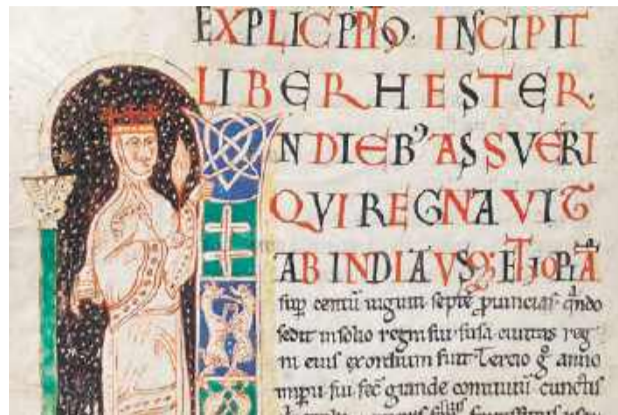 EXPLIC PHO. INCIPIT
LIBER HESTER.
IN DIEB' ASSVERI
QVI REGNAVIT
AB INDIA VSQ; ETIOPIĀ
sup centū uiginti septē puincias qndo
sedit in solio regni sui susa ciuitas reg
ni eius exordium fuit. Tercio g anno
impii sui fec grande conuiuiū cunctis